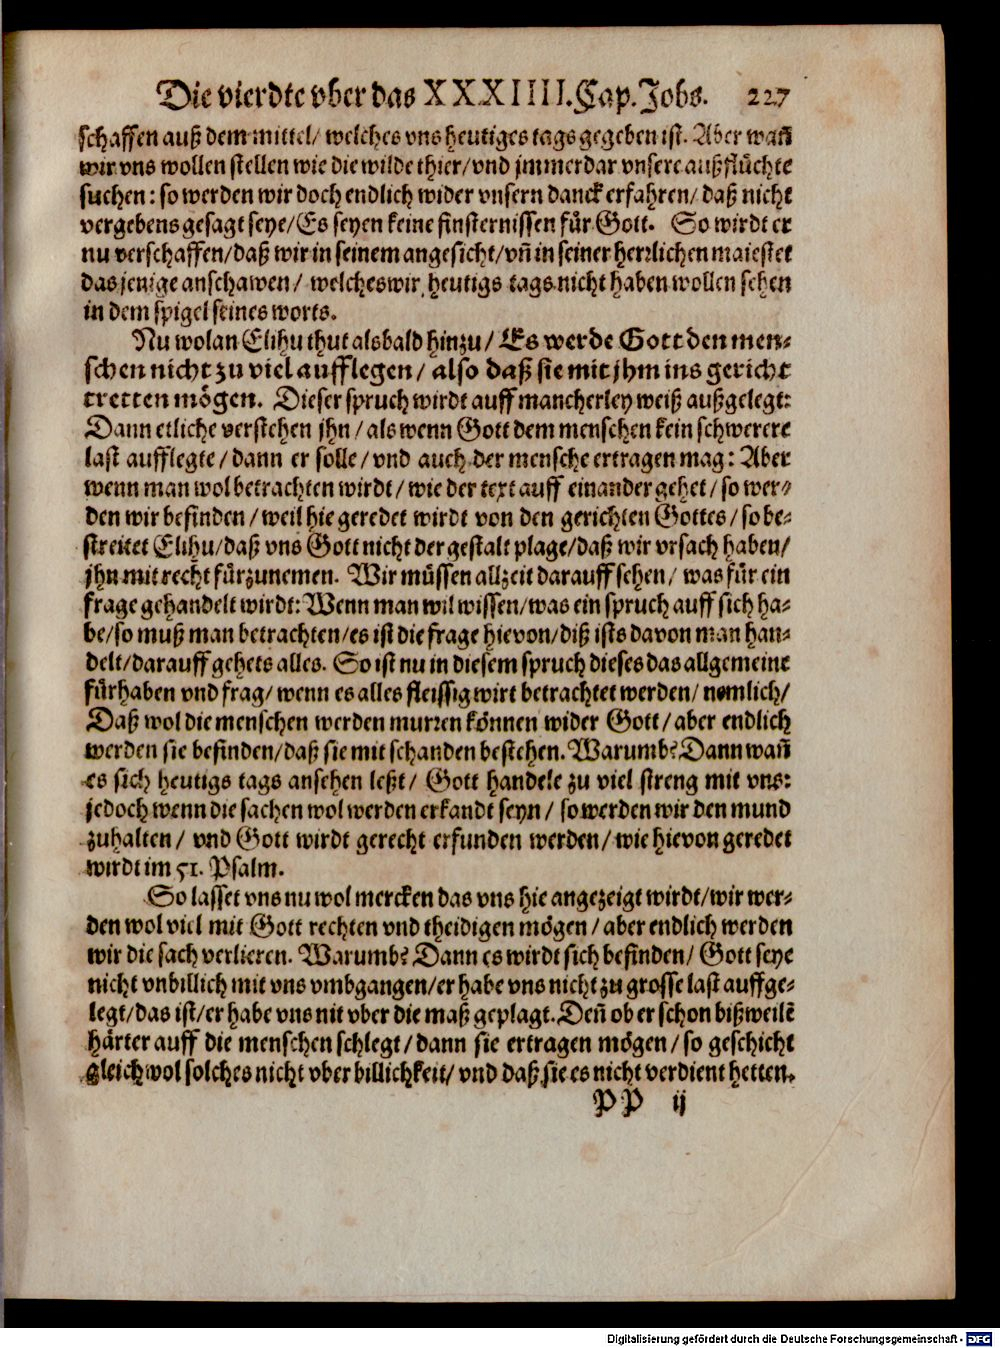 Die vierdte vber das XXXIIII. Cap. Jobs. 227
schaffen auß dem mittel/ welches vns heutiges tags gegeben ist. Aber wañ
wir vns wollen stellen wie die wilde thier/ vnd jmmerdar vnsere außflüchte
suchen: so werden wir doch endlich wider vnsern danck erfahren/ daß nicht
vergebens gesagt seye/ Es seyen keine finsternissen für Gott. So wirdt er
nu verschaffen/ daß wir in seinem angesicht/ vñ in seiner herrlichen maiestet
das jenige anschawen/ welches wir heutigs tags nicht haben wollen sehen
in dem spigel seines worts.
Nu wolan Elihu thut alsbald hinzu/ Es werde Gott den men-
schen nicht zu viel aufflegen/ also daß sie mit jhm ins gericht
tretten mögen. Dieser spruch wirdt auff mancherley weiß außgelegt:
Dann etliche verstehen jhn/ als wenn Gott dem menschen kein schwerere
last aufflegte/ dann er solle/ vnd auch der mensche ertragen mag: Aber
wenn man wol betrachten wirdt/ wie der text auff einander gehet/ so wer-
den wir befinden/ weil hie geredet wirdt von den gerichten Gottes/ so be-
streitet Elihu/ daß vns Gott nicht der gestalt plage/ daß wir vrsach haben/
jhn mit recht fürzunemen. Wir müssen allzeit darauff sehen/ was für ein
frage gehandelt wirdt: Wenn man wil wissen/ was ein spruch auff sich ha-
be/ so muß man betrachten/ es ist die frage hievon/ diß ists davon man han-
delt/ darauff gehets alles. So ist nu in diesem spruch dieses das allgemeine
fürhaben vnd frag/ wenn es alles fleissig wirt betrachtet werden/ nemlich/
Daß wol die menschen werden murren können wider Gott/ aber endlich
werden sie befinden/ daß sie mit schanden bestehen. Warumb? Dann wañ
es sich heutigs tags ansehen leßt/ Gott handele zu viel streng mit vns:
jedoch wenn die sachen wol werden erkandt seyn/ so werden wir den mund
zuhalten/ vnd Gott wirdt gerecht erfunden werden/ wie hievon geredet
wirdt im 51. Psalm.
So lasset vns nu wol mercken das vns hie angezeigt wirdt/ wir wer-
den wol viel mit Gott rechten vnd theidigen mögen/ aber endlich werden
wir die sach verlieren. Warumb? Dann es wirdt sich befinden/ Gott seye
nicht vnbillich mit vns vmbgangen/ er habe vns nicht zu grosse last auffge-
legt/ das ist/ er habe vns nit vber die maß geplagt. Deñ ob er schon bißweilē
härter auff die menschen schlegt/ dann sie ertragen mögen/ so geschicht
gleichwol solches nicht vber billichkeit/ vnd daß sie es nicht verdient hetten.
PP ij
Digitalisierung gefördert durch die Deutsche Forschungsgemeinschaft - DFG